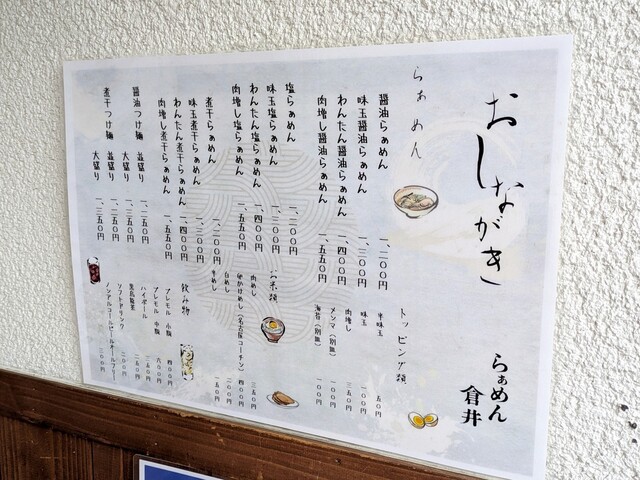 おしながき
らぁめん
倉井
らぁめん
醤油らぁめん 一、二〇〇円
味玉醤油らぁめん 一、三〇〇円
わんたん醤油らぁめん 一、四〇〇円
肉増し醤油らぁめん 一、五五〇円
塩らぁめん 一、二〇〇円
味玉塩らぁめん 一、三〇〇円
わんたん塩らぁめん 一、四〇〇円
肉増し塩らぁめん 一、五五〇円
煮干らぁめん 一、二〇〇円
味玉煮干らぁめん 一、三〇〇円
わんたん煮干らぁめん 一、四〇〇円
肉増し煮干らぁめん 一、五五〇円
醤油つけ麺 並盛り 一、二五〇円
大盛り 一、三五〇円
煮干つけ麺 並盛り 一、二五〇円
大盛り 一、三五〇円
トッピング類
半味玉 五〇円
味玉 一〇〇円
肉増し 三五〇円
メンマ（別皿） 一〇〇円
海苔（別皿） 一〇〇円
ご米類
肉めし 三五〇円
卵かけめし（名古屋コーチン） 四〇〇円
白めし 二〇〇円
半めし 一五〇円
飲み物
プレモル 小瓶 四〇〇円
プレモル 中瓶 六〇〇円
ハイボール 三五〇円
黒烏龍茶 二五〇円
ソフトドリンク 二〇〇円
ノンアルコールビールオールフリー 三〇〇円